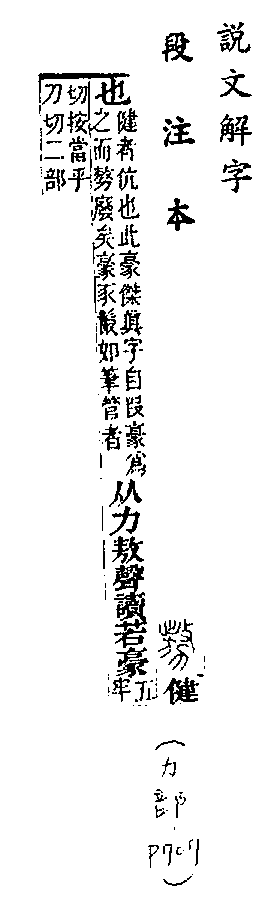 説文解字
段注本
𠢕
健
也
健者伉也此豪傑眞字自叚豪爲
之而𠢕廢矣豪豕鬣如筆管者
从力敖聲讀若豪
五
牢
切按當乎
刀切二部
(力部.